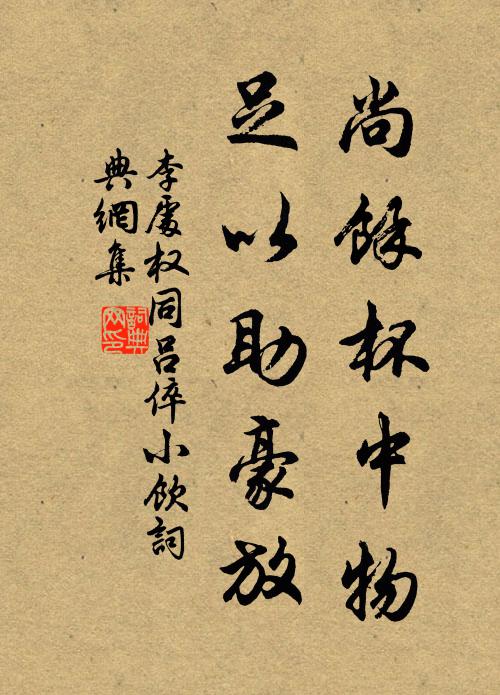 尚餘杯中物
足以助豪放
李處权同吕倅小飲詞
典網集
詞典
网印